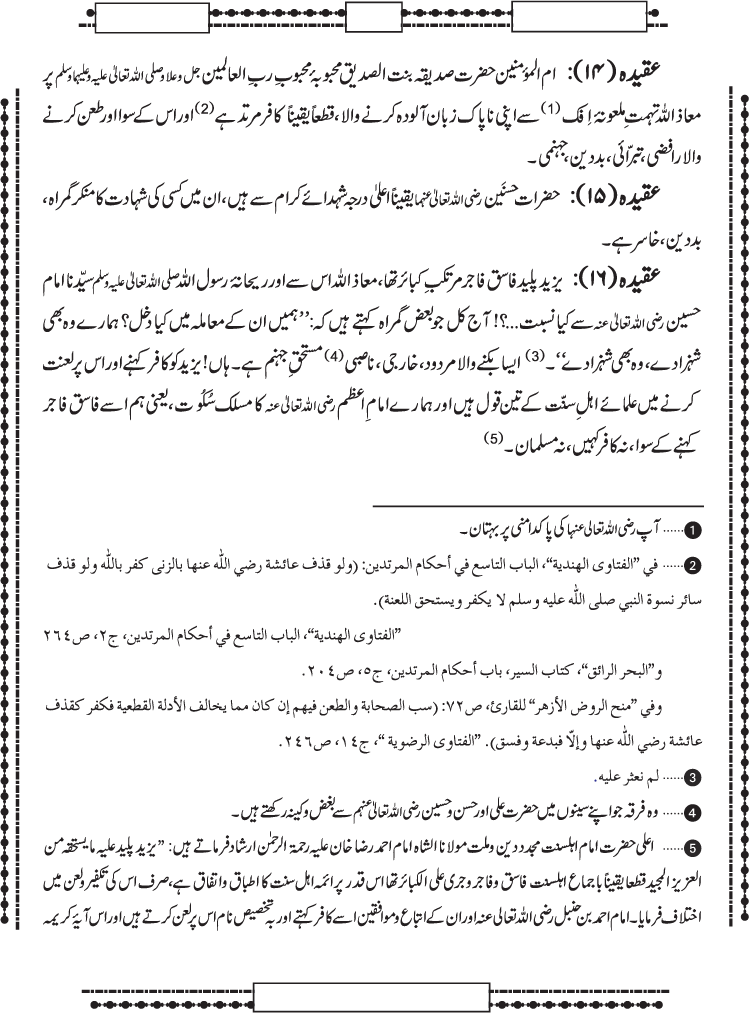 عقیدہ (۱۴): ام المؤمنین حضرت صدیقہ بنت الصدیق محبوبۂ محبوبِ ربِ العالمین جل وعلا وصلی اللہ تعالیٰ علیہ وعلیہا وسلم پر
معاذ اللہ تہمتِ ملعونۂ اِفک (1) سے اپنی ناپاک زبان آلودہ کرنے والا، قطعاً یقیناً کافر مرتد ہے (2) اور اس کے سوا اور طعن کرنے
والا رافضی، تبرّائی، بددین، جہنمی ۔
عقیدہ (۱۵): حضرات حسنَین رضی اللہ تعالیٰ عنہما یقیناً اعلیٰ درجہ شہدائے کرام سے ہیں، ان میں کسی کی شہادت کا منکر گمراہ،
بددین، خاسر ہے۔
عقیدہ (۱۶): یزید پلید فاسق فاجر مرتکبِ کبائر تھا، معاذ اللہ اس سے اور ریحانۂ رسول اللہ صلی اللہ تعالیٰ علیہ وسلم سیّدنا امام
حسین رضی اللہ تعالیٰ عنہ سے کیا نسبت...؟! آج کل جو بعض گمراہ کہتے ہیں کہ: ’’ہمیں ان کے معاملہ میں کیا دخل؟ ہمارے وہ بھی
شہزادے، وہ بھی شہزادے‘‘۔ (3) ایسا بکنے والا مردود، خارجی، ناصبی (4) مستحقِ جہنم ہے۔ ہاں! یزید کو کافر کہنے اور اس پر لعنت
کرنے میں علمائے اہلِ سنّت کے تین قول ہیں اور ہمارے امامِ اعظم رضی اللہ تعالیٰ عنہ کا مسلک سُکُوت، یعنی ہم اسے فاسق فاجر
کہنے کے سوا، نہ کافر کہیں، نہ مسلمان ۔ (5)
1 ...... آپ رضی اللہ تعالی عنہا کی پاکدامنی پر بہتان۔
2 ...... في ”الفتاوى الهندية“، الباب التاسع في أحكام المرتدين: (ولو قذف عائشة رضي الله عنها بالزنى كفر بالله ولو قذف
سائر نسوة النبي صلى الله عليه وسلم لا يكفر ويستحق اللعنة).
”الفتاوى الهندية“، الباب التاسع في أحكام المرتدين، ج٢، ص٢٦٤
و”البحر الرائق“، كتاب السير، باب أحكام المرتدين، ج٥، ص٢٠٤.
وفي ”منح الروض الأزهر“ للقارئ، ص٧٢: (سب الصحابة والطعن فيهم إن كان مما يخالف الأدلة القطعية فكفر كقذف
عائشة رضي الله عنها وإلّا فبدعة وفسق). ”الفتاوى الرضوية“، ج١٤، ص٢٤٦.
3 ...... لم نعثر عليه.
4 ...... وہ فرقہ جو اپنے سینوں میں حضرت علی اور حسن و حسین رضی اللہ تعالیٰ عنہم سے بغض و کینہ رکھتے ہیں ۔
5 ...... اعلی حضرت امام اہلسنت مجدد دین و ملت مولانا الشاہ امام احمد رضا خان علیہ رحمۃ الرحمٰن ارشاد فرماتے ہیں: ”یزید پلید علیہ ما یستحقہ من
العزیز المجید قطعا یقیناً باجماع اہلسنت فاسق و فاجر وجری علی الکبائر تھا اس قدر پر ائمہ اہل سنت کا اطباق و اتفاق ہے، صرف اس کی تکفیر و لعن میں
اختلاف فرمایا۔ امام احمد بن حنبل رضی اللہ تعالی عنہ اور ان کے اتباع و موافقین اسے کافر کہتے اور بہ تخصیص نام اس پر لعن کرتے ہیں اور اس آیۂ کریمہ